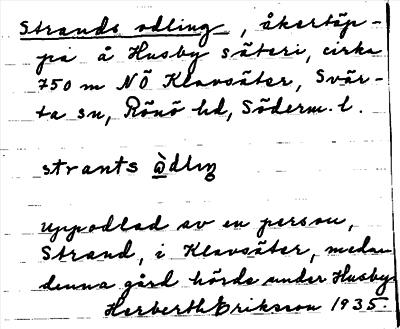 Strands odling, åkertäp-
pa å Husby säteri, cirka
750 m NÖ Klovsäter, Svär-
ta sn, Rönö hd, Söderm. l.
strants ὼdlıŋ
Uppodlad av en person,
Strand, i Klovsäter, medan
denna gård hörde under Husby.
Herberth Eriksson 1935.